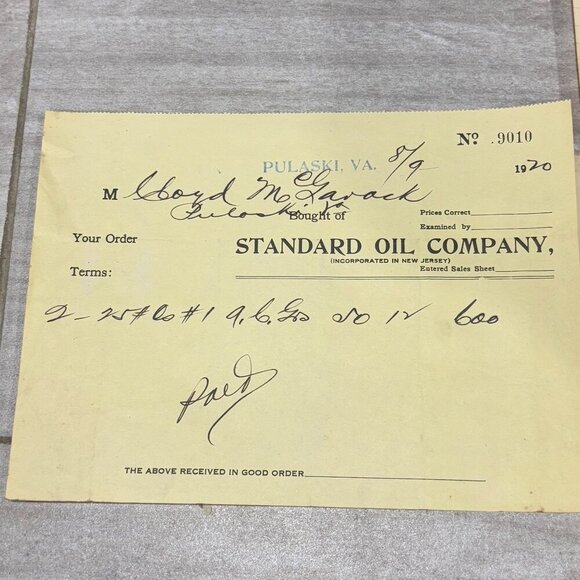 Nº 9010
PULASKI, VA. 8/9 1920
M Lloyd McGavock
Pulaski Va
Bought of
Prices Correct
Examined by
Your Order
STANDARD OIL COMPANY,
(INCORPORATED IN NEW JERSEY)
Terms:
Entered Sales Sheet
2 - 25 # #1 50 12 600
Paid
THE ABOVE RECEIVED IN GOOD ORDER